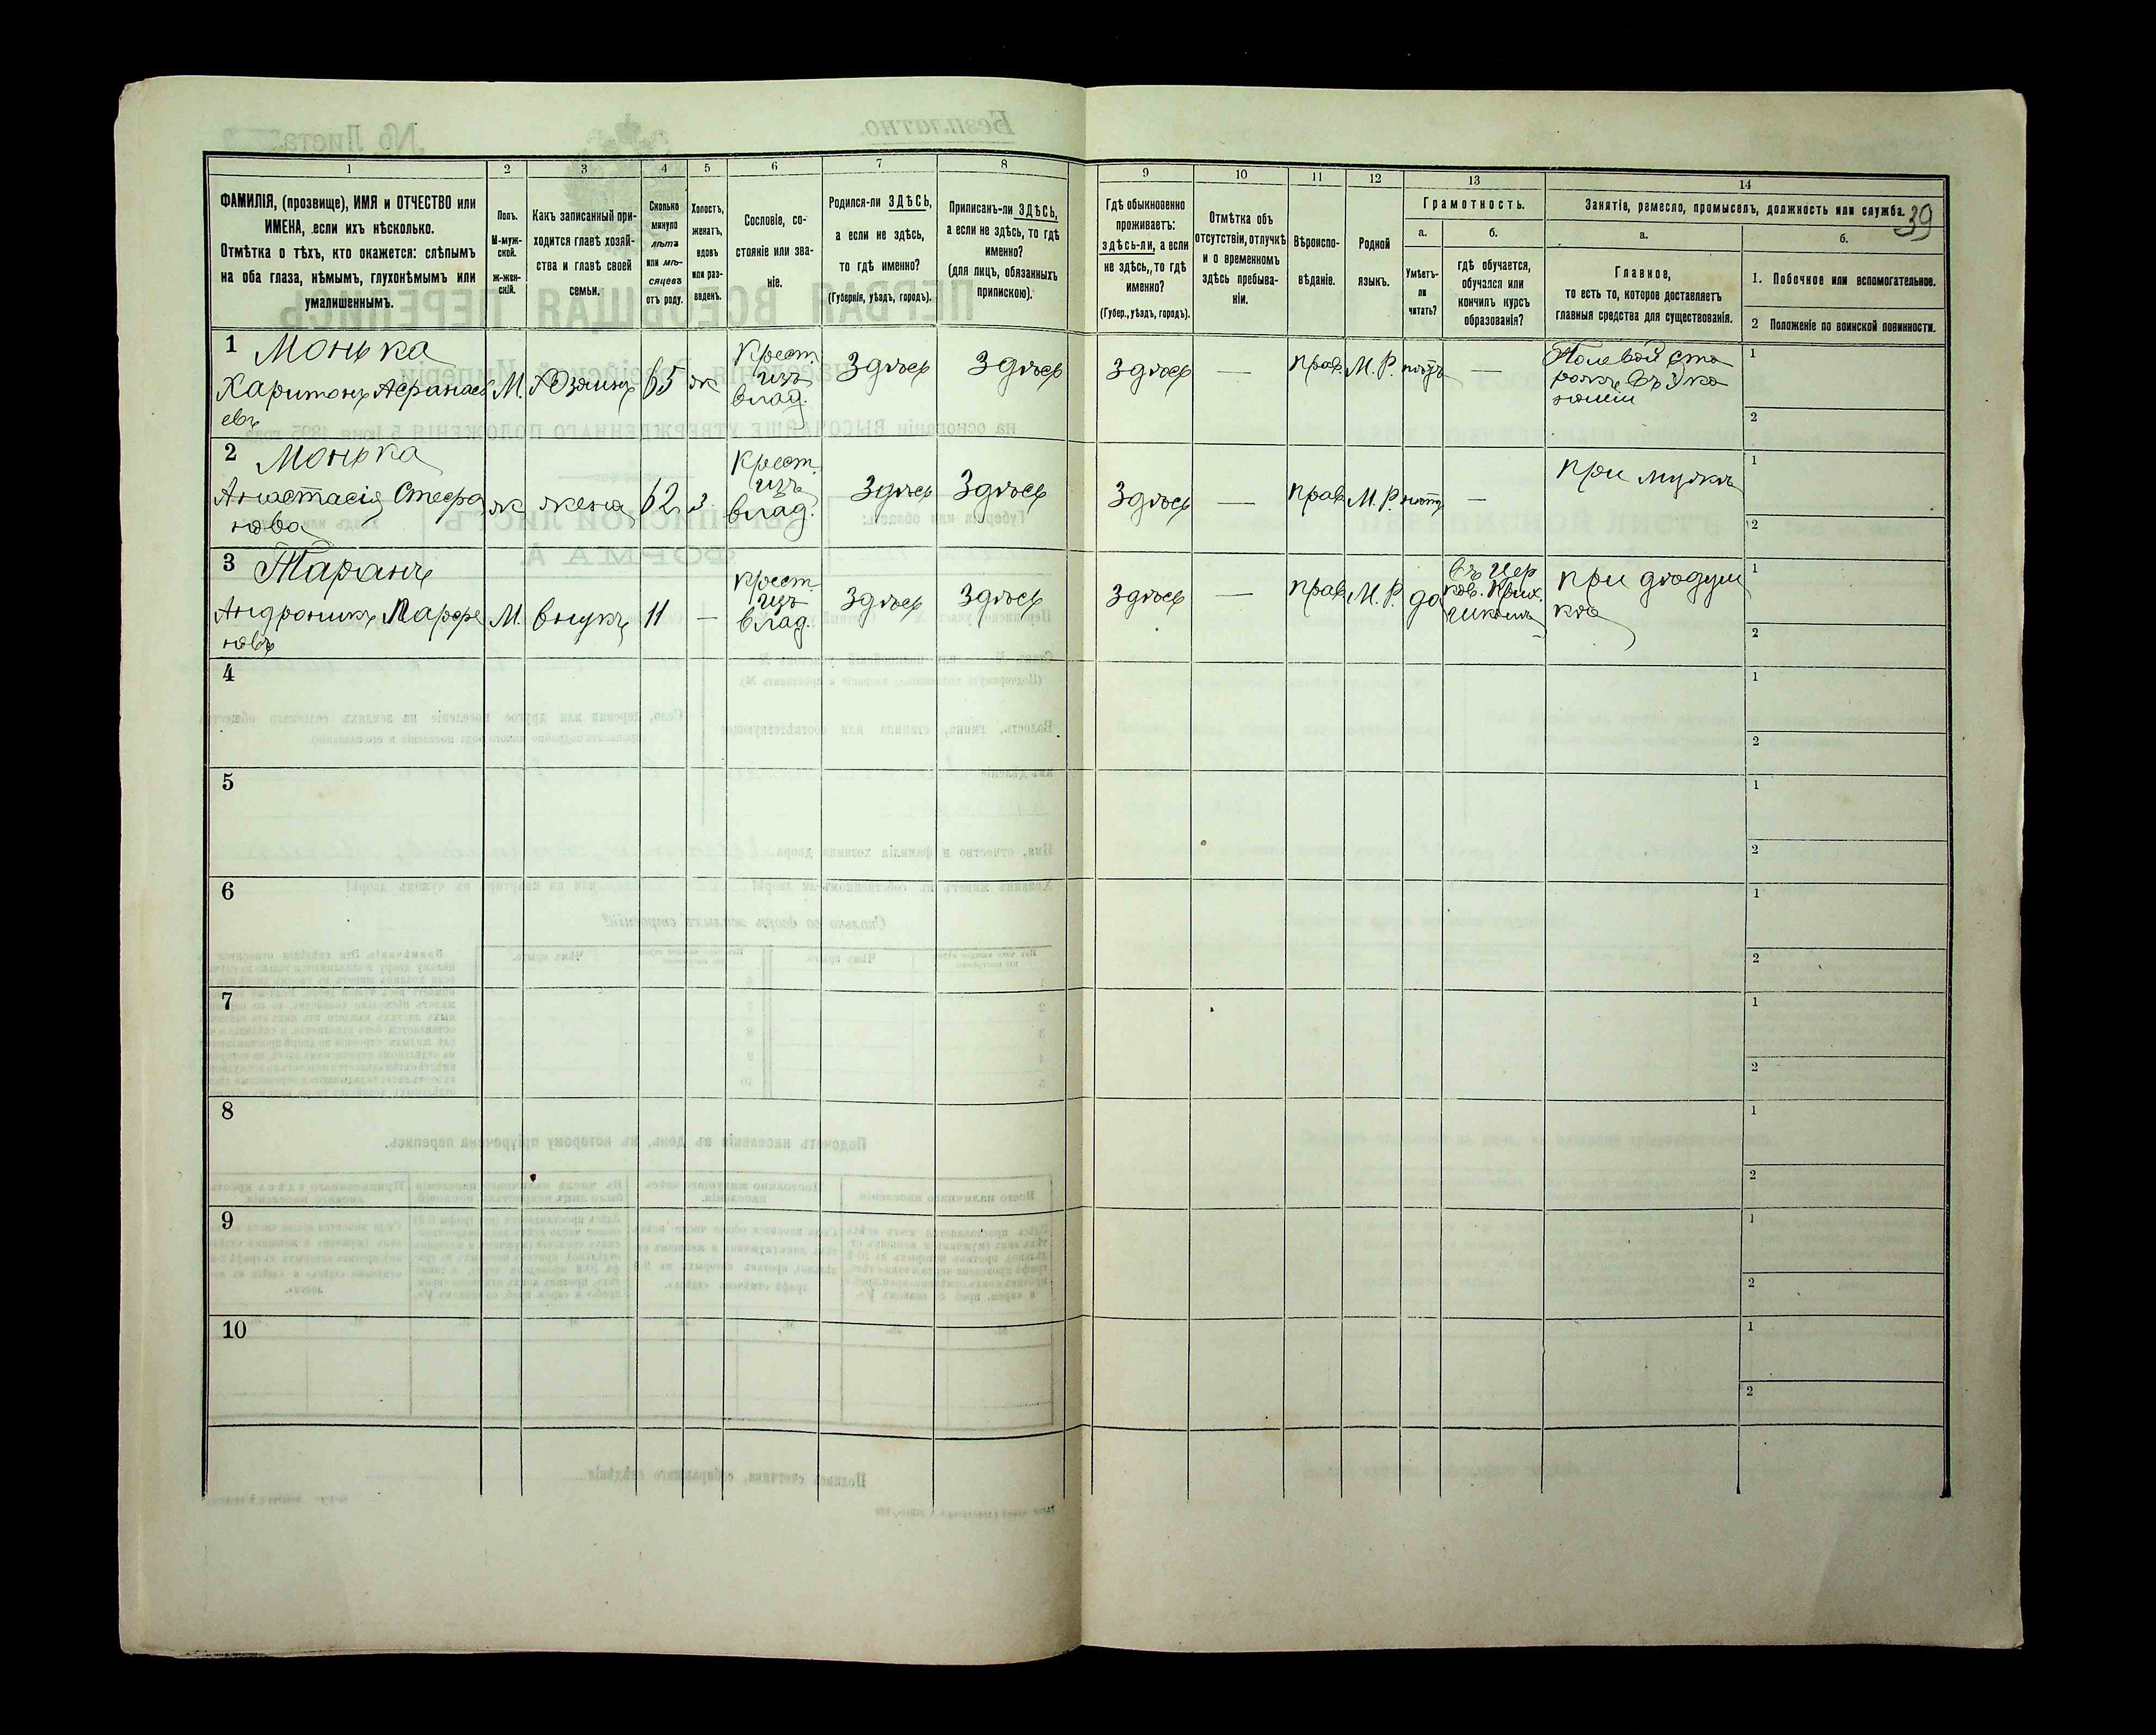 39
1 2 3 4 5 6 7 8 9 10 11 12 13 14
ФАМИЛІЯ, (прозвище), ИМЯ и ОТЧЕСТВО или
ИМЕНА, если ихъ нѣсколько.
Отмѣтка о тѣхъ, кто окажется: слѣпымъ
на оба глаза, нѣмымъ, глухонѣмымъ или
умалишеннымъ.
Полъ.
М-муж-
ской.
ж-жен-
скій.
Какъ записанный при-
ходится главѣ хозяй-
ства и главѣ своей
семьи.
Сколько
минуло
лѣтъ
или мѣ-
сяцевъ
отъ роду.
Холостъ,
женатъ,
вдовъ
или раз-
веденъ.
Сословіе, со-
стояніе или зва-
ніе.
Родился-ли ЗДѢСЬ,
а если не здѣсь,
то гдѣ именно?
(Губернія, уѣздъ, городъ).
Приписанъ-ли ЗДѢСЬ,
а если не здѣсь, то гдѣ
именно?
(для лицъ, обязанныхъ
припискою).
Гдѣ обыкновенно
проживаетъ:
здѣсь-ли, а если
не здѣсь, то гдѣ
именно?
(Губер., уѣздъ, городъ).
Отмѣтка объ
отсутствіи, отлучкѣ
и о временномъ
здѣсь пребыва-
ніи.
Вѣроиспо-
вѣданіе.
Родной
языкъ.
Грамотность.
а.
Умѣетъ-
ли
читать?
б.
гдѣ обучается,
обучался или
кончилъ курсъ
образованія?
Занятіе, ремесло, промыселъ, должность или служба.
а.
Главное,
то есть то, которое доставляетъ
главныя средства для существованія.
б.
1. Побочное или вспомогательное.
2 Положеніе по воинской повинности.
1 Монька
Харитонъ Афанась
евъ
М.
Хозяинъ
65
ж
Крест.
изъ
влад.
Здѣсь
Здѣсь
Здѣсь
—
прав.
М. Р.
нѣтъ
—
Полевой сто
рожъ въ Эко
номіи
1
2
2 Монька
Анастасія Стефа
нова
ж
жена
62
з.
Крест.
изъ
влад.
Здѣсь
Здѣсь
Здѣсь
—
прав.
М. Р.
нѣтъ
—
при мужѣ
1
2
3 Таранъ
Андроникъ Парфе
новъ
М.
внукъ
11
—
крест.
изъ
влад.
Здѣсь
Здѣсь
Здѣсь
—
прав.
М. Р.
да
въ Цер
ков. Прих.
школѣ
при дѣдуш
кѣ
1
2
4
1
2
5
1
2
6
1
2
7
1
2
8
1
2
9
1
2
10
1
2